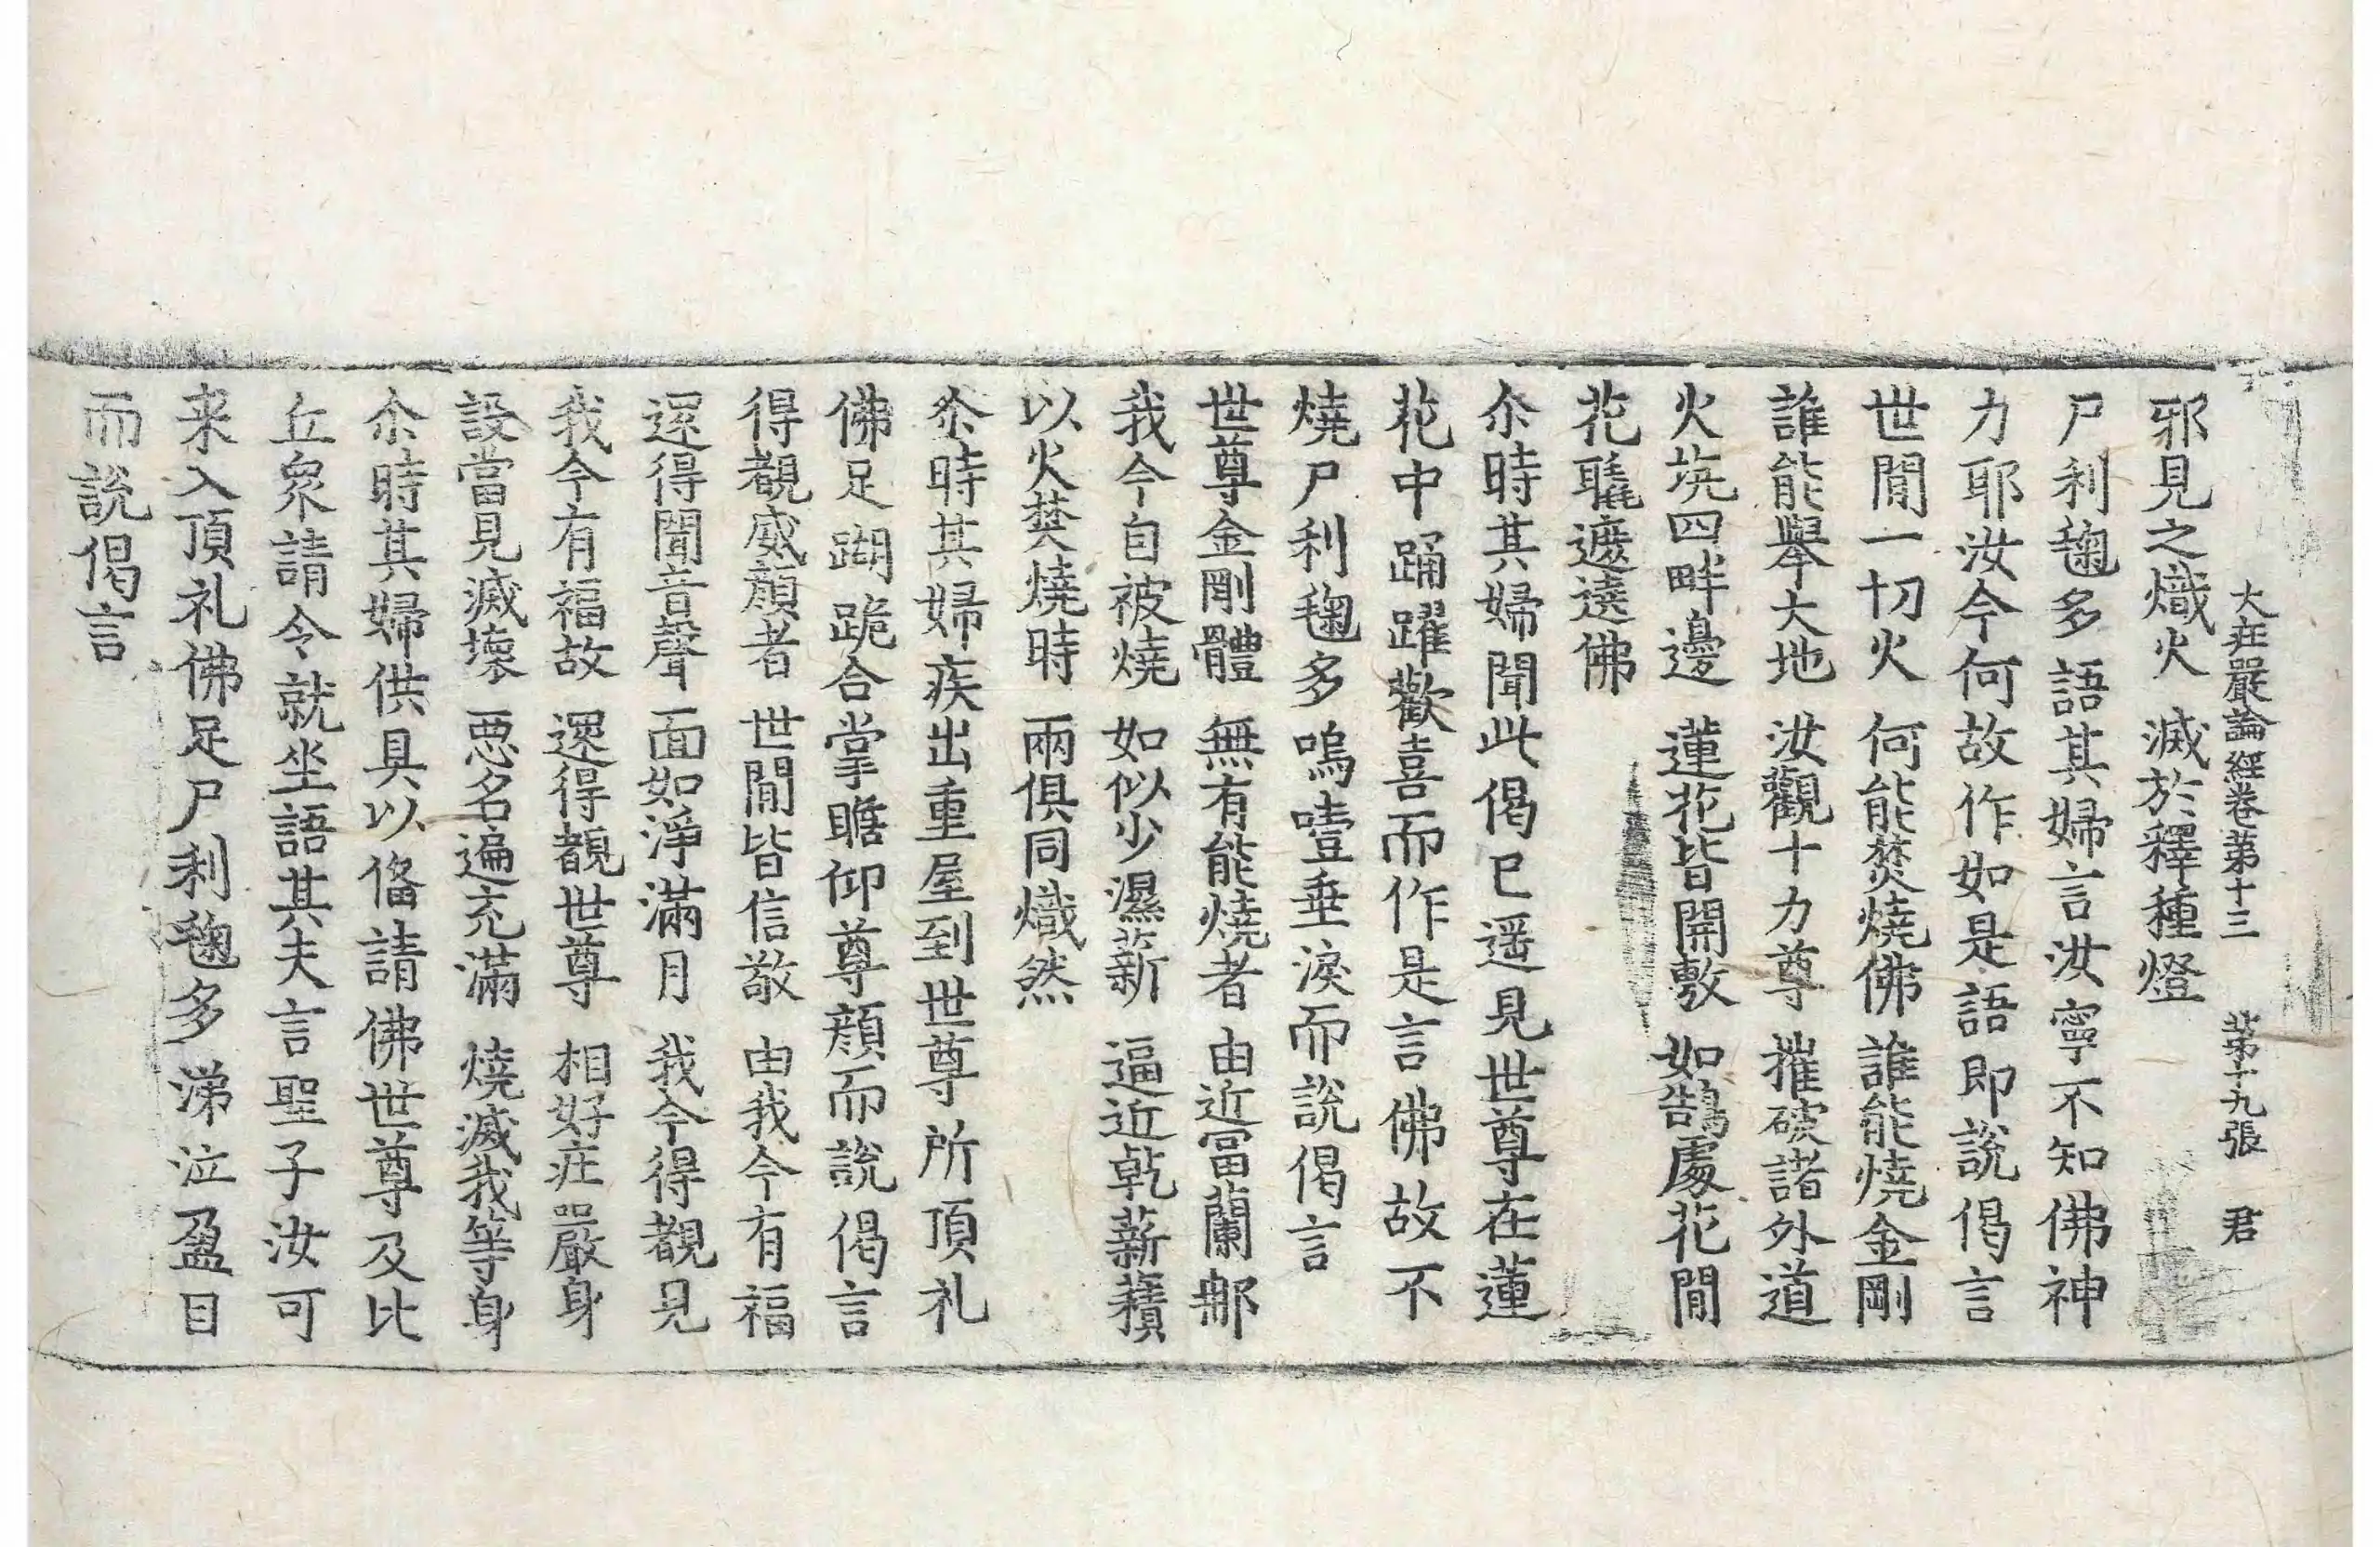 大莊嚴論經卷第十三 第十九張 君
邪見之熾火 滅於釋種燈
尸利毱多語其婦言汝寧不知佛神
力耶汝今何故作如是語即說偈言
世間一切火 何能焚燒佛 誰能燒金剛
誰能舉大地 汝觀十力尊 摧破諸外道
火坑四畔邊 蓮花皆開敷 如鵠處花間
花毦遮遶佛
尒時其婦聞此偈已遥見世尊在蓮
花中踊躍歡喜而作是言佛故不
燒尸利毱多嗚噎垂淚而說偈言
世尊金剛體 無有能燒者 由近富蘭那
我今自被燒 如似少濕薪 逼近乾薪𧂐
以火焚燒時 兩俱同熾然
尒時其婦疾出重屋到世尊所頂礼
佛足蹦跪合掌瞻仰尊顏而說偈言
得覩威顏者 世間皆信敬 由我今有福
還得聞音聲 面如淨滿月 我今得覩見
我今有福故 還得覩世尊 相好莊嚴身
設當見滅壞 惡名遍充滿 燒滅我等身
尒時其婦供具以俻請佛世尊及比
丘衆請令就坐語其夫言聖子汝可
来入頂礼佛足尸利毱多涕泣盈目
而說偈言